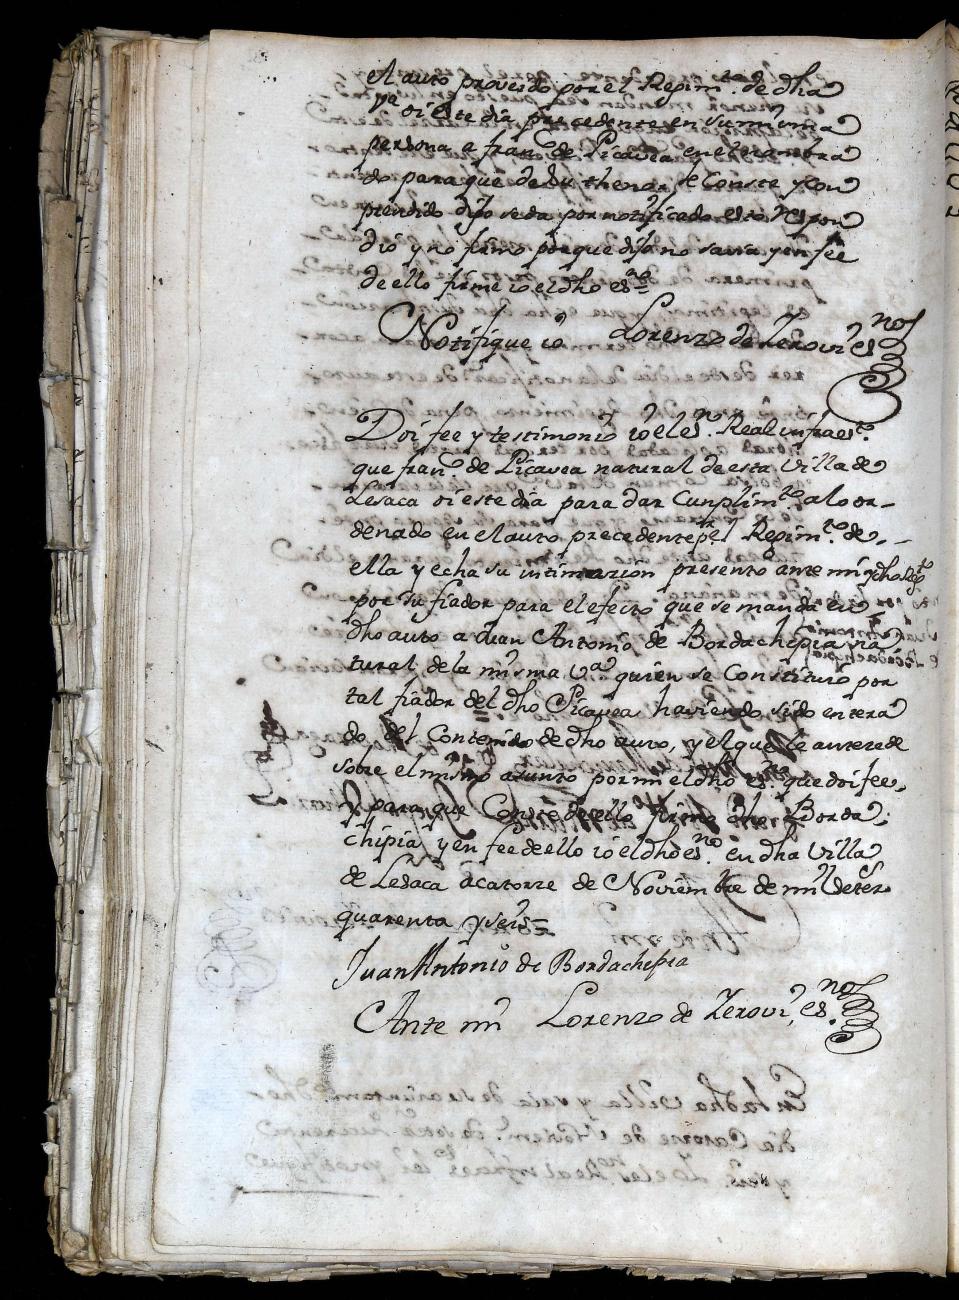 el auto proveido por el Regim.to de dha
v.a oi este dia precedente en su misma
persona a fran.co de Picavea en el nombra
do para que de su thenor le Conste y Con
prendido dijo se da por notificado esto Respon
dió y no firmo porque dijo no savia y en fee
de ello firme io el dho es.no =
Notifique io Lorenzo de Zerovi es.no
Doi fee y testimonio io el es.no Real infraes.to
que fran.co de Picavea natural de esta Villa de
Lesaca oi este dia para dar Cunplim.to a lo or-
denado en el auto precedente p.r el Regim.to de
ella y echa su intimazion presento ante mi y dho Reg.to
por su fiador para el efecto que se manda en
dho auto a Juan Antonio de Bordachipia na
tural de la misma v.a quien se Constituio por
tal fiador del dho Picavea haviendo sido entera
do del Contenido de dho auto, y el que le antezede
sobre el mismo asunto por mi el dho es.no que doi fee,
Y para que Conste de ello firmo dho Borda
chipia y en fee de ello io el dho es.no en dha Villa
de Lesaca a catorze de Noviembre de mil Setez.s
quarenta y seis =
Juan Antonio de Bordachipia
Ante mi Lorenzo de Zerovi, es.no